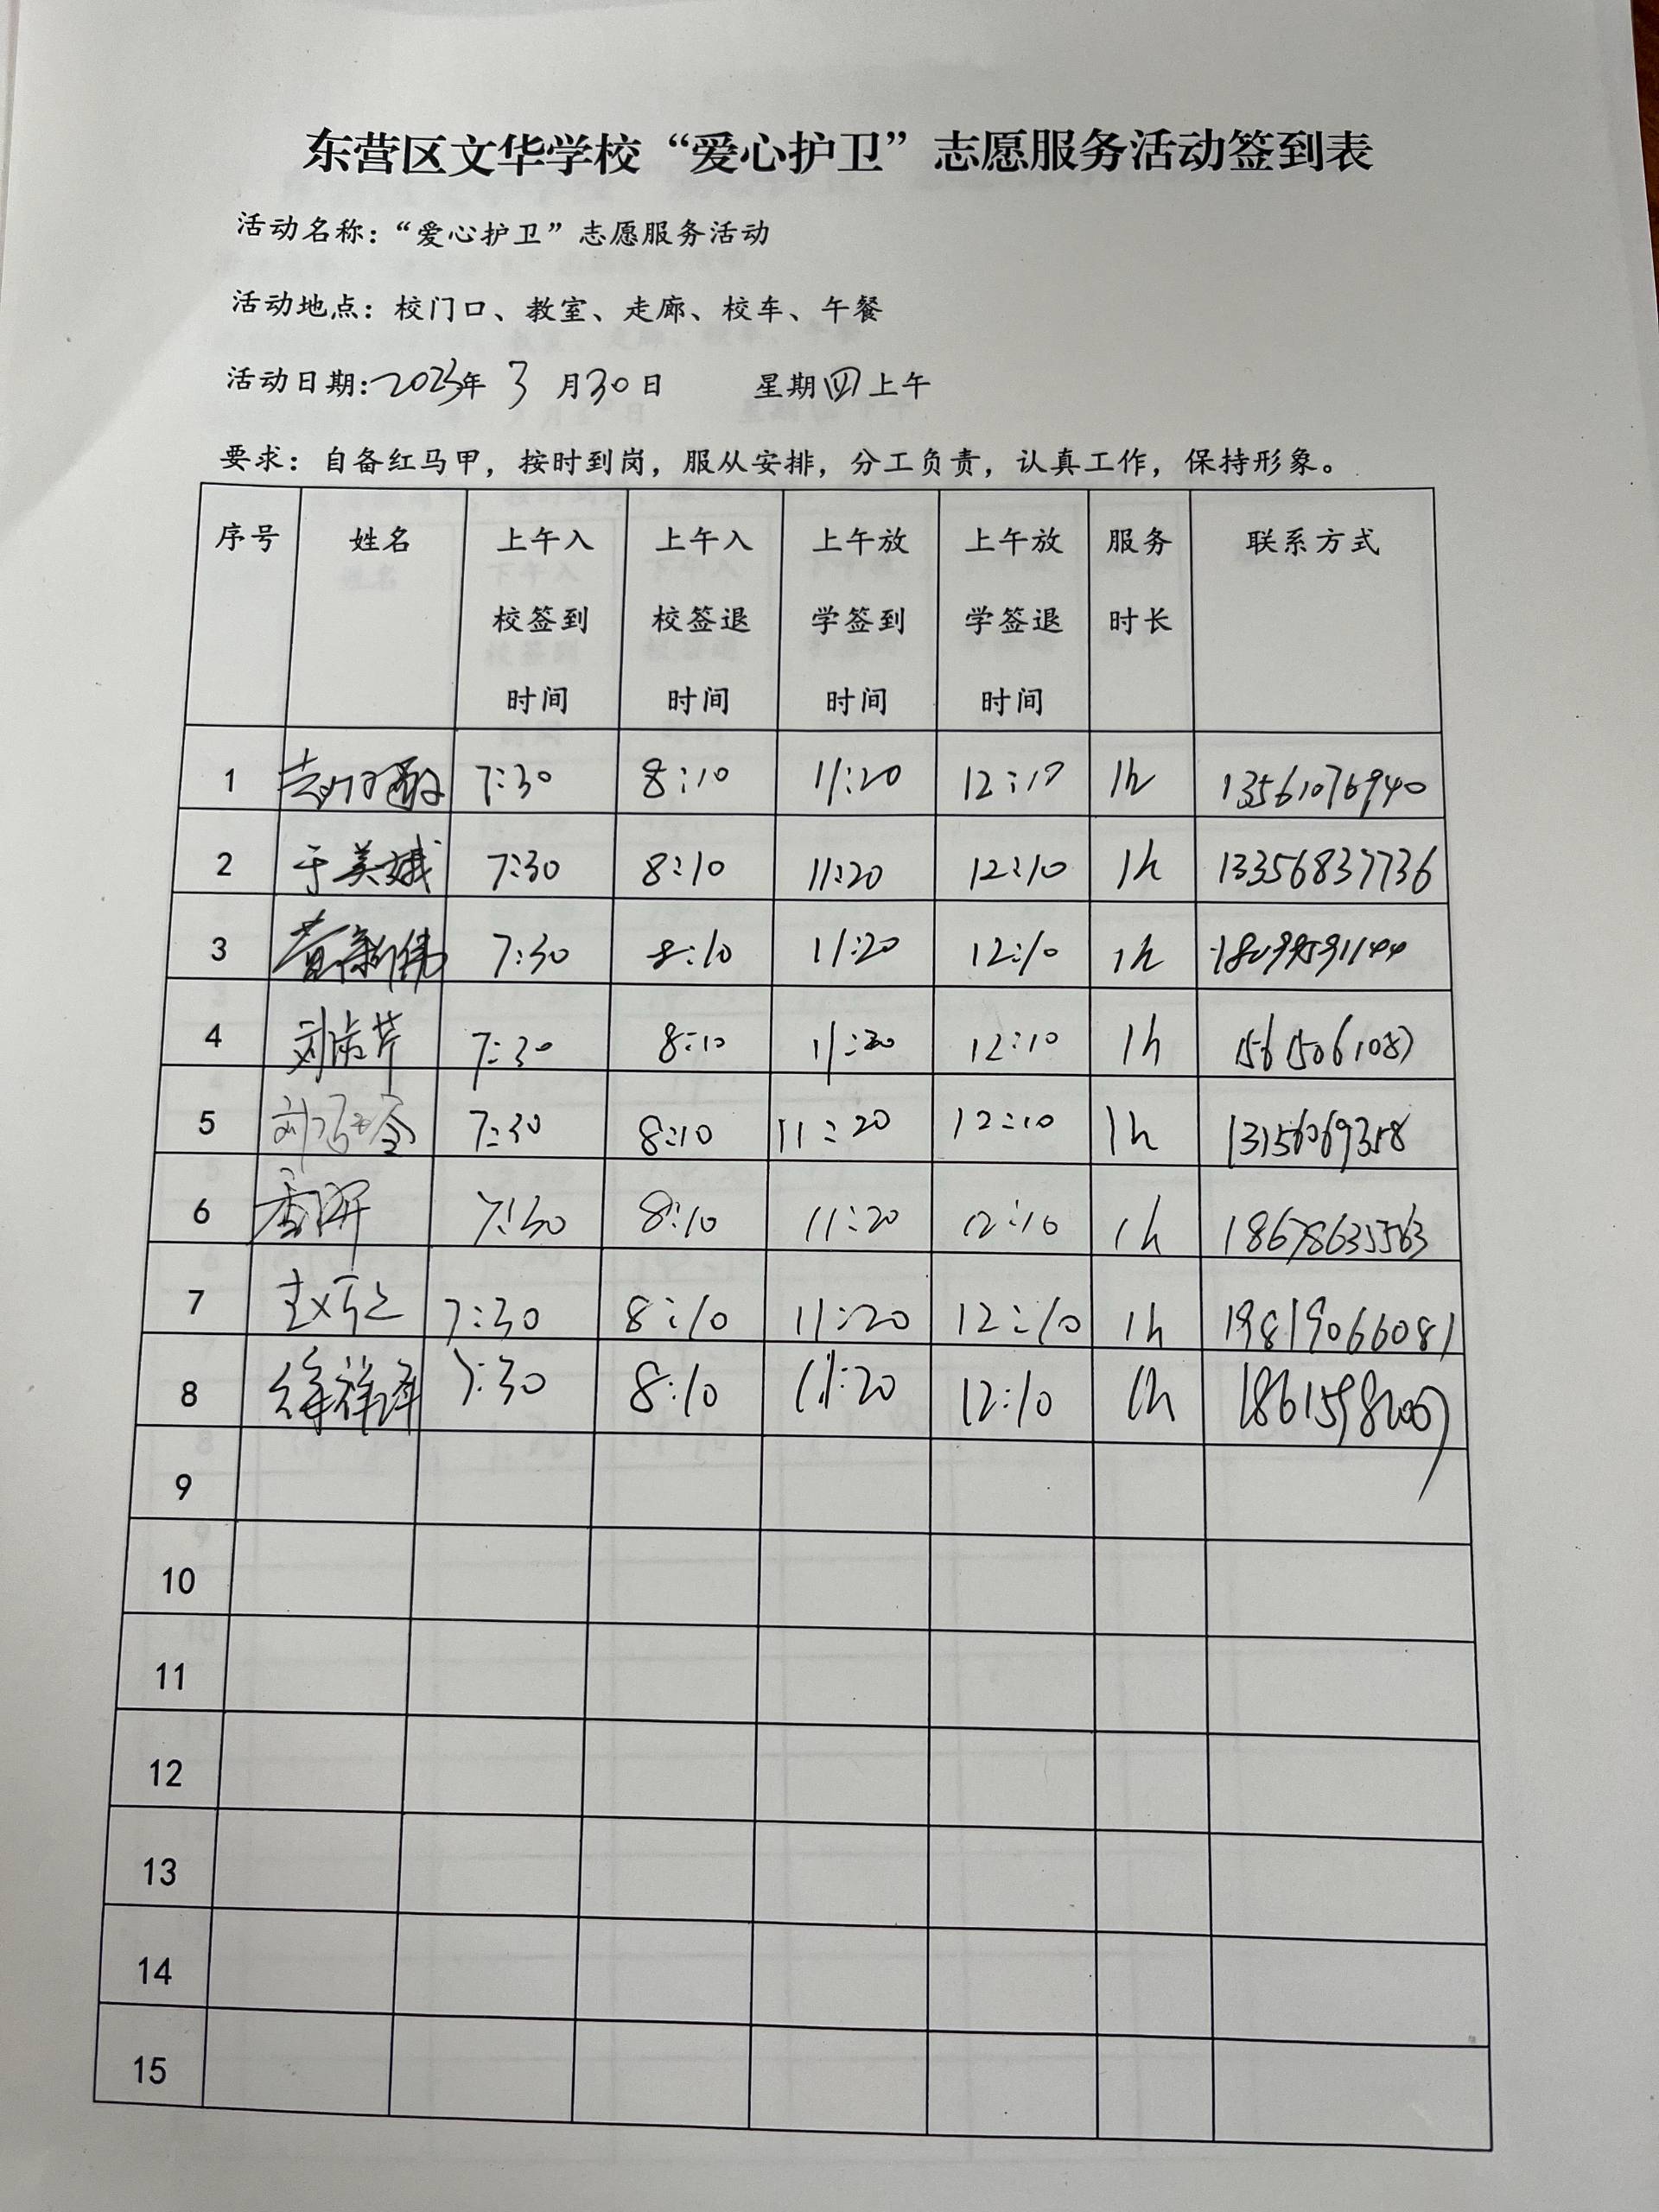 东营区文华学校“爱心护卫”志愿服务活动签到表
活动名称：“爱心护卫”志愿服务活动
活动地点：校门口、教室、走廊、校车、午餐
活动日期:2023年 3 月30日 星期四上午
要求：自备红马甲，按时到岗，服从安排，分工负责，认真工作，保持形象。
序号 姓名 上午入校签到时间 上午入校签退时间 上午放学签到时间 上午放学签退时间 服务时长 联系方式
1 7:30 8:10 11:20 12:10 1h 13561076940
2 于美娥 7:30 8:10 11:20 12:10 1h 13356837736
3 7:30 8:10 11:20 12:10 1h
4 7:30 8:10 11:20 12:10 1h 15615061087
5 7:30 8:10 11:20 12:10 1h 13156069358
6 7:30 8:10 11:20 12:10 1h 18678635563
7 7:30 8:10 11:20 12:10 1h 19819066081
8 徐祥译 7:30 8:10 11:20 12:10 1h
9
10
11
12
13
14
15